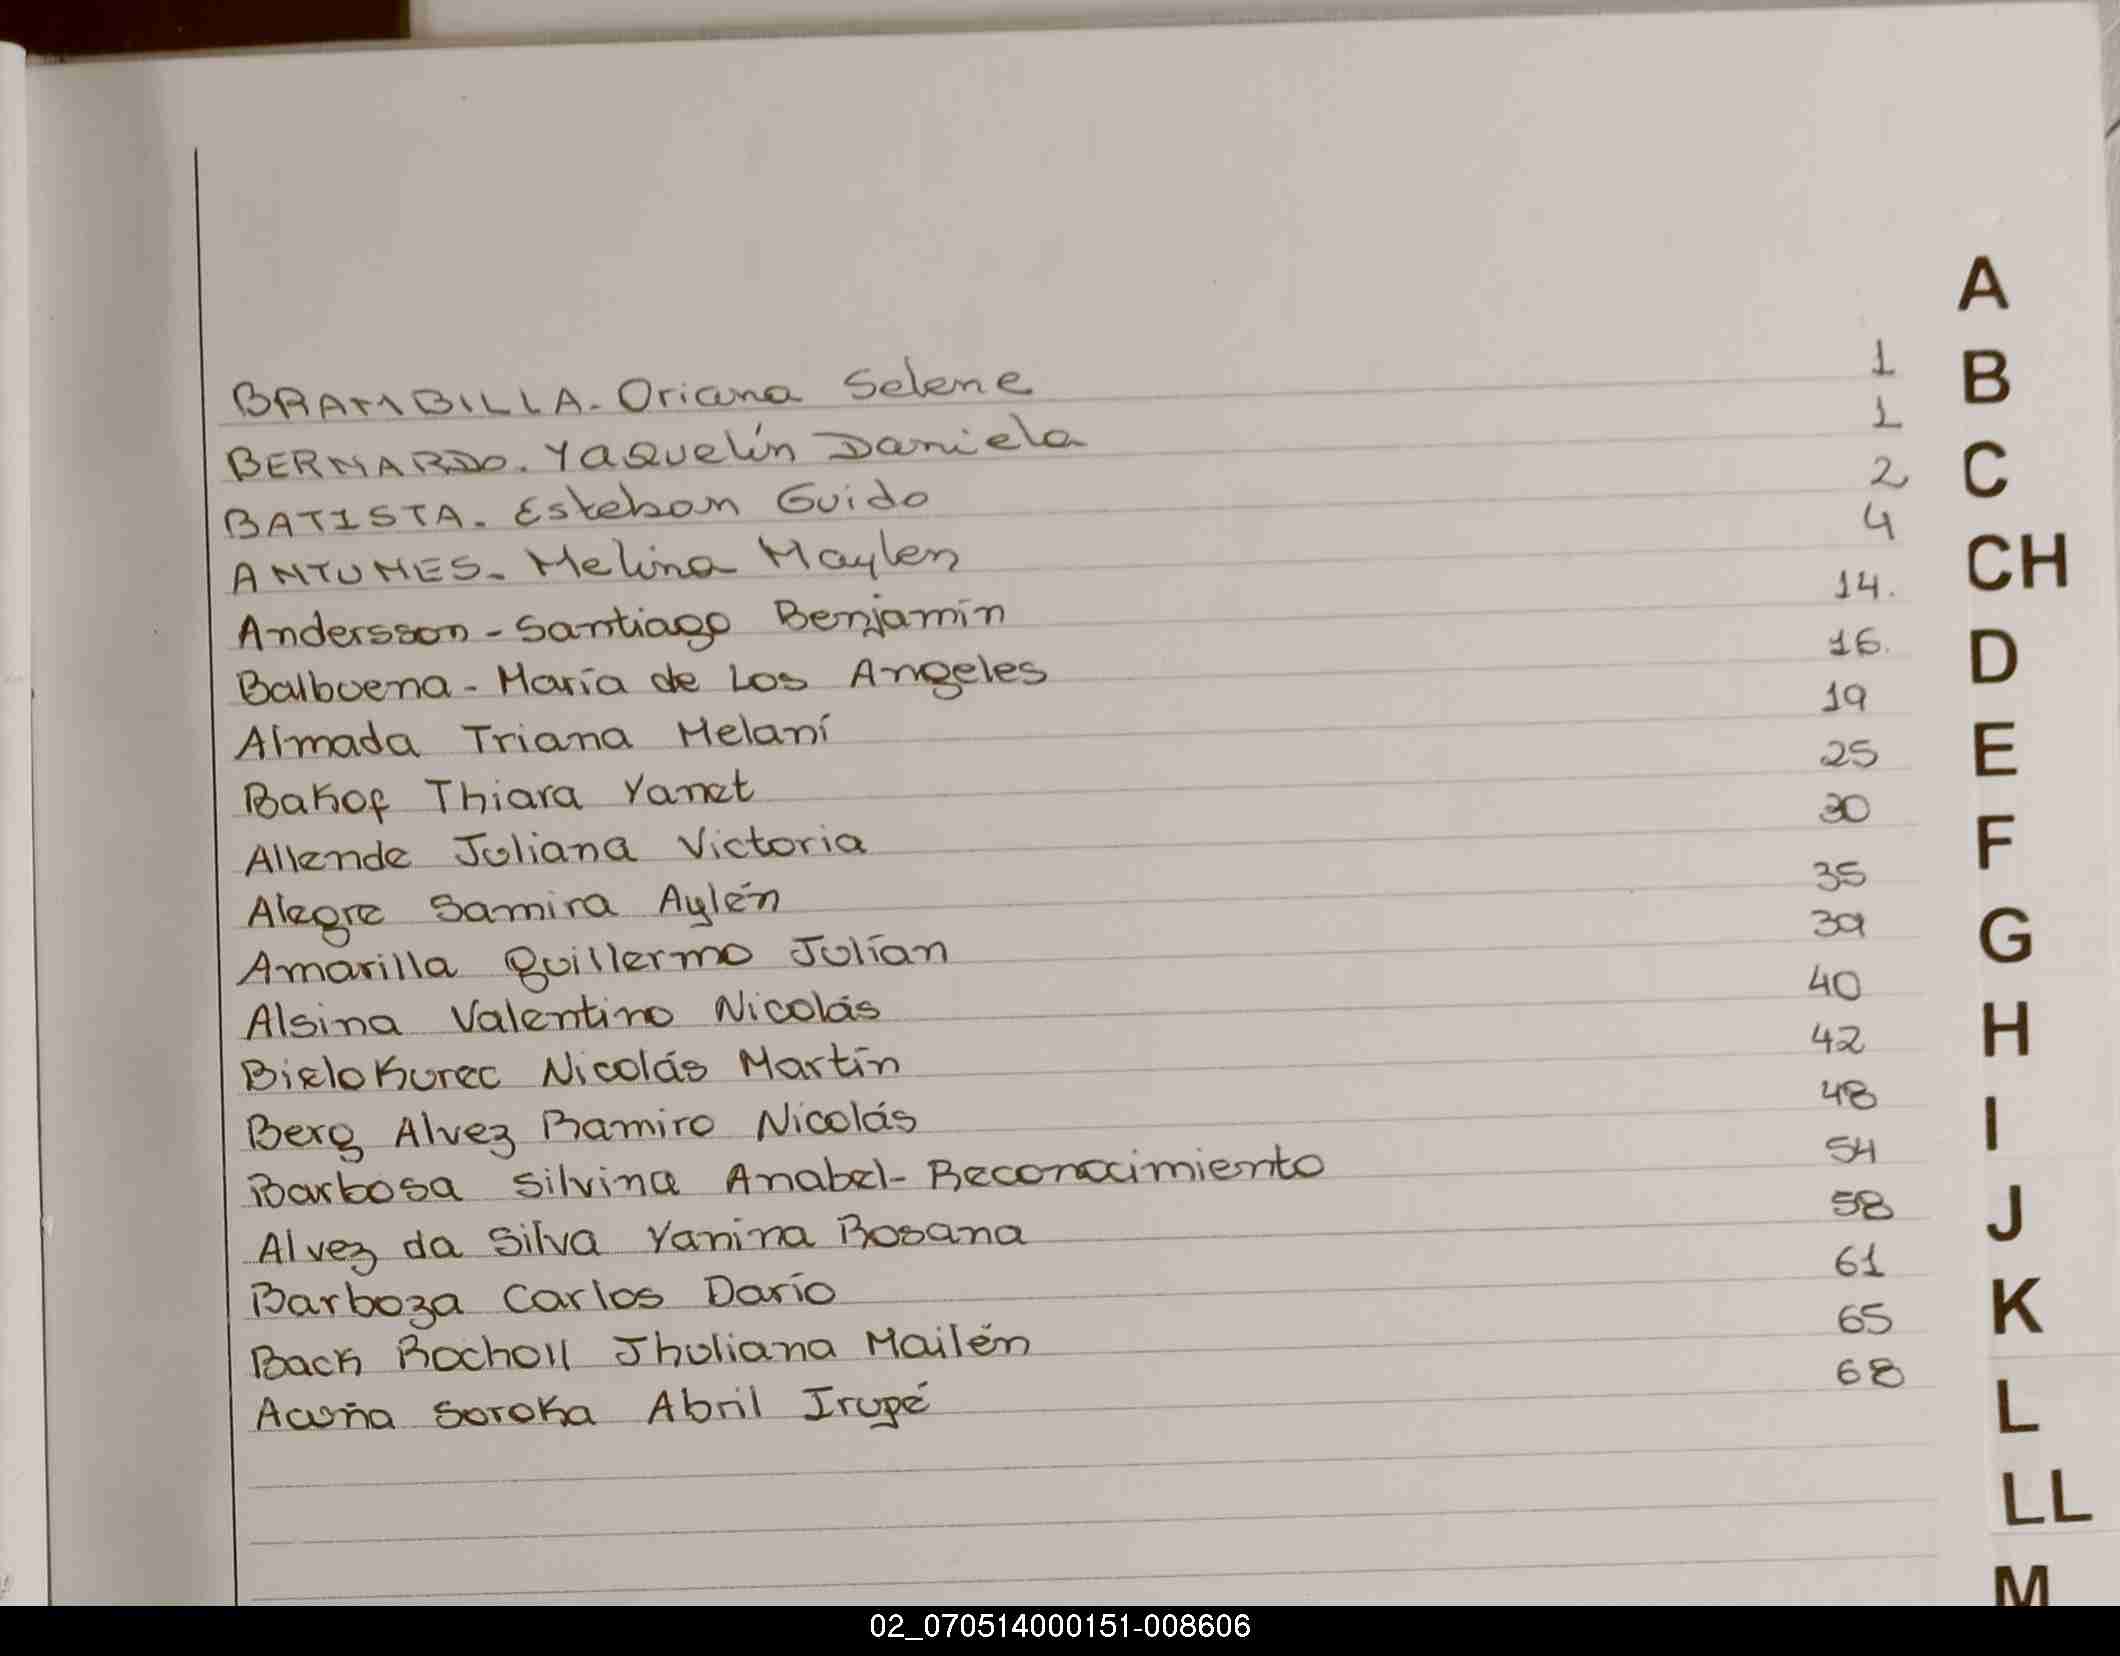 BRAMBILLA. Oriana Selene 1
BERNARDO. Yaquelín Daniela 1
BATISTA. Esteban Guido 2
ANTUNES. Melina Maylen 4
Andersson - Santiago Benjamín 14.
Balbuena - María de Los Angeles 16.
Almada Triana Melaní 19
Bakof Thiara Yanet 25
Allende Juliana Victoria 30
Alegre Samira Aylén 35
Amarilla Guillermo Julían 39
Alsina Valentino Nicolás 40
Bielokurec Nicolás Martín 42
Berg Alvez Ramiro Nicolás 48
Barbosa Silvina Anabel - Reconocimiento 54
Alvez da Silva Yanina Rosana 58
Barboza Carlos Darío 61
Back Rocholl Jhuliana Mailén 65
Acuña Soroka Abril Irupé 68
A
B
C
CH
D
E
F
G
H
I
J
K
L
LL
M
02_070514000151-008606